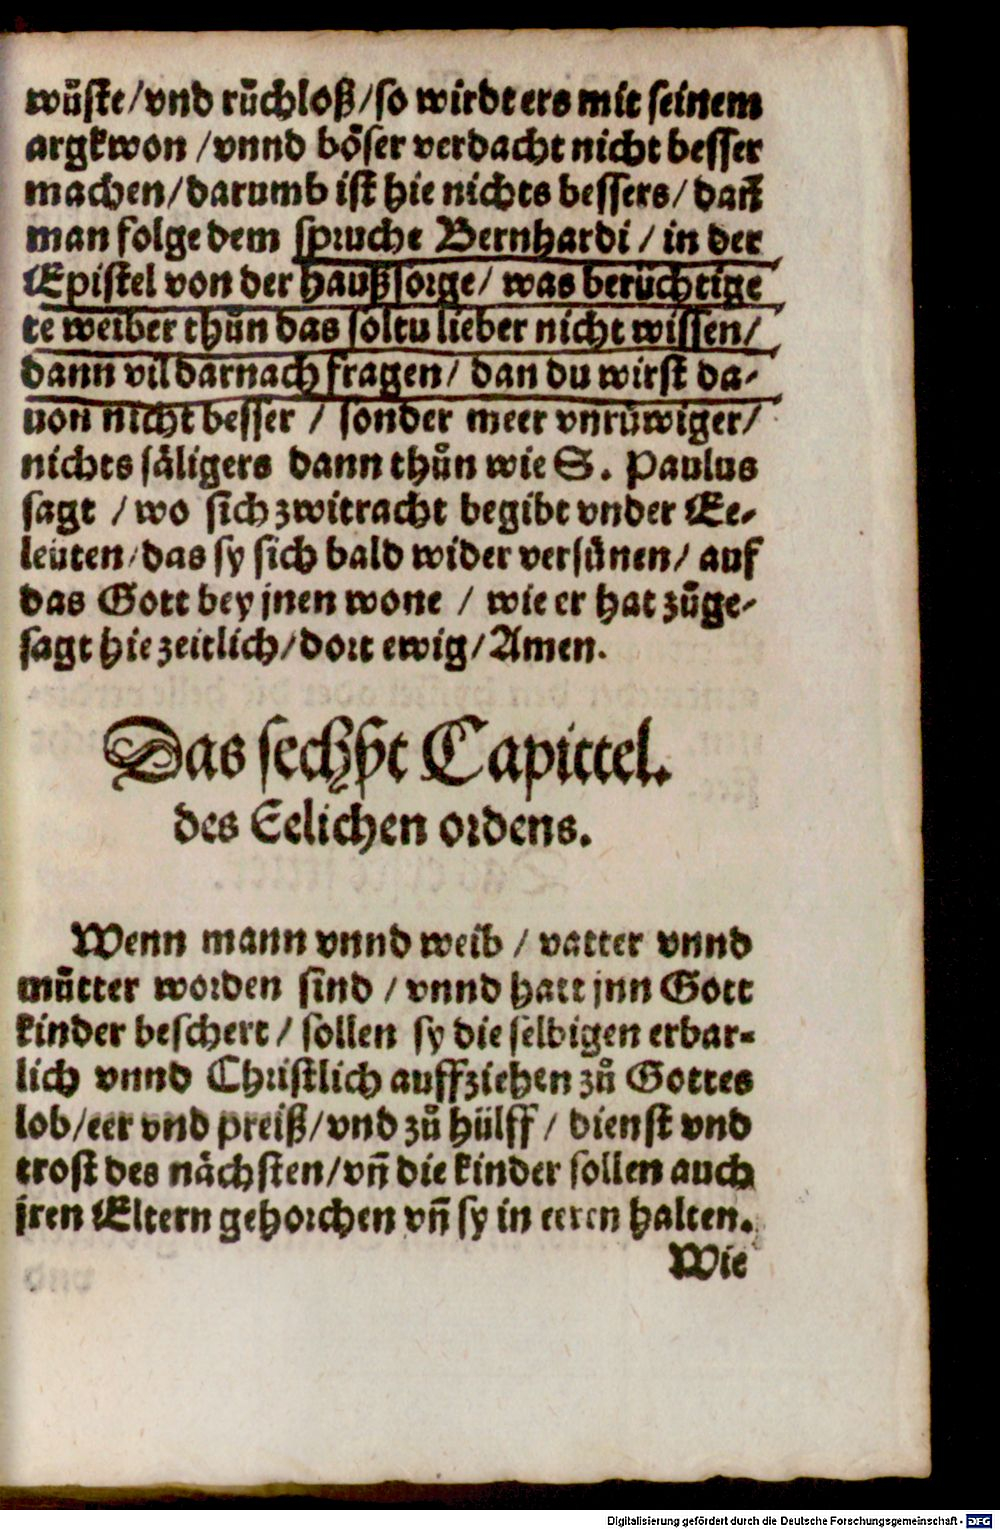 wuͤſte/vnd ruͤchloß/ſo wirdt ers mit ſeinem
argkwon /vnnd boͤſer verdacht nicht beſſer
machen/darumb iſt hie nichts beſſers/ dañ
man folge dem ſpruche Bernhardi / in der
Epiſtel von der haußſorge/ was beruͤchtige
te weiber thuͦn das ſoltu lieber nicht wiſſen/
dann vil darnach fragen/ dan du wirſt da⸗
uon nicht beſſer / ſonder meer vnruͤwiger/
nichts ſaͤligers dann thuͦn wie S. Paulus
ſagt /wo ſich zwitracht begibt vnder Ee⸗
leuten/das ſy ſich bald wider verſuͤnen/ auf
das Gott bey jnen wone / wie er hat zuͦge⸗
ſagt hie zeitlich/dort ewig/Amen.
Das ſechſzt Capittel.
des Eelichen ordens.
Wenn mann vnnd weib / vatter vnnd
muͦtter worden ſind /vnnd hatt jnn Gott
kinder beſchert/ ſollen ſy die ſelbigen erbar⸗
lich vnnd Chriſtlich auffziehen zuͦ Gottes
lob/eer vnd preiß/vnd zuͦ huͤlff/ dienſt vnd
troſt des naͤchſten/vñ die kinder ſollen auch
jren Eltern gehorchen vñ ſy in eeren halten.
Wie
Digitalisierung gefördert durch die Deutsche Forschungsgemeinschaft - DFG